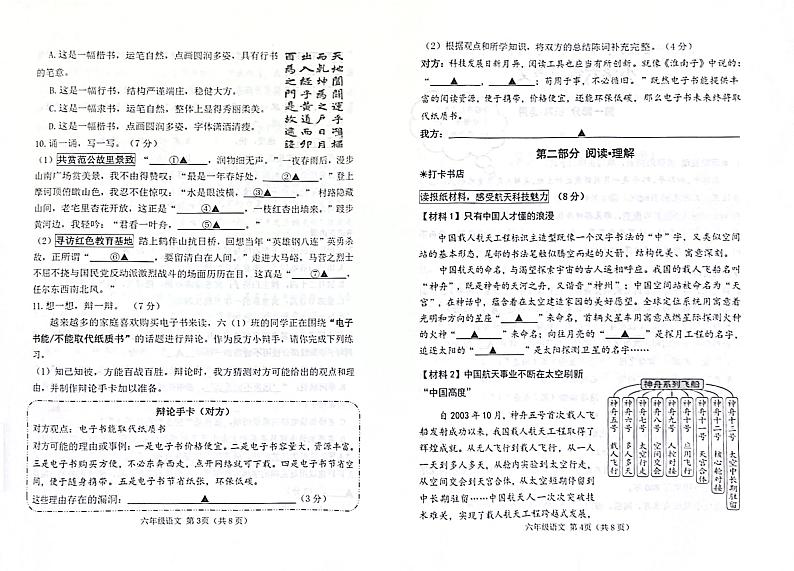 A.这是一幅楷书，运笔自然，点画圆润多姿，具有行书
的笔意。
B.这是一幅行书，结构严谨端庄，稳健大方。
C.这是一幅隶书，运笔自然，整体上显得秀丽柔美。
D.这是一幅楷书，点画圆润多姿，字体潇洒清瘦。
天地阖闢运乎
鬼神之妙
10.诵一诵，写一写。（7 分）
（1）共赏范公故里景致 “ ①▲ ，润物细无声。”一夜春雨后，漫步
山南广场赏美景，我不由得赞叹：“最是一年春好处， ②▲ 。”登上
摩诃顶俯瞰山色，我忍不住惊叹：“水是眼波横， ③▲ 。”村路隐藏
山间，老宅里杏花开放，这正是“ ④▲ ，一枝红杏出墙来。”踱步
黄河边，我轻吟：“君看一叶舟， ⑤▲ 。”
（2）寻访红色教育基地 踏上鹤伴山抗日桥，回想当年“英雄钢八连”英勇杀
敌，正所谓“ ⑥▲ ，要留清白在人间。”走进大马峪，马营之烈士
不屈不挠与国民党反动派激烈战斗的场面历历在目，这真是“ ⑦▲ ，
任尔东西南北风。”
11.想一想，辩一辩。（7 分）
越来越多的家庭喜欢购买电子书来读，六（1）班的同学正在围绕“电子
书能/不能取代纸质书”的话题进行辩论，作为反方小辩手，请你完成下列练
习。
（1）知己知彼，方能百战百胜。辩论时，我方猜测对方可能给出的观点和理
由，并制作辩论手卡以做准备。
辩论手卡（对方）
对方观点：电子书能取代纸质书
对方可能的理由或事例：一是电子书价格便宜。二是电子书容量大，资源丰富。
三是电子书购买方便，不必东奔西走，点开网络就可下载。四是电子书节省空
间，便于随身携带。五是电子书节省纸张，环保低碳。
这些理由存在的漏洞： ▲ （3 分）
六年级语文 第 3页（共 8 页）
（2）根据观点和所学知识，将双方的总结陈词补充完整。（4 分）
对方：科技发展日新月异，阅读工具也应当有所创新。就像《淮南子》中说的：
“ ▲ ， ▲ ；苟周于事，不必循旧。”既然电子书能提供丰
富的阅读资源，便于携带，价格便宜，还能环保低碳，那么电子书未来终将取
代纸质书。
我方： ▲
第二部分 阅读•理解
☀打卡书店
读报纸材料，感受航天科技魅力（8 分）
【材料 1】只有中国人才懂的浪漫
中国载人航天工程标识主造型既像一个汉字书法的“中”字，又类似空间
站的基本形态，尾部的书法笔触似腾空而起的火箭，结构优美、寓意深刻。
中国航天的命名，与渴望探索宇宙的古人遥相呼应。我国的载人飞船名叫
“神舟”，既是神奇的天河之舟，又谐音“神州”；中国空间站被命名为“天
宫”，在神话中，蕴含着在太空建造家园的美好愿望。全球定位系统用寓意着
光明和方向的星座“ ▲ ”来命名，首辆火星车用寓意点燃星际探测火种
的火神“ ▲ ”来命名；向往月亮的“ ▲ ”是探月工程的名字，
追逐太阳的“ ▲ ”是太阳探测卫星的名字……
【材料 2】中国航天事业不断在太空刷新
“中国高度”
自 2003 年 10 月，神舟五号首次载人飞
船发射成功以来，我国载人航天工程取得了
辉煌成就。从无人飞行到载人飞行，从一人
一天到多人多天，从舱内实验到太空行走，
从空间交会到天宫合体，从太空短期停留到
中长期驻留……中国航天人一次次突破技
术难关，实现了我国载人航天工程跨越式发展，
神舟系列飞船
神舟五号 载人飞行
神舟六号 多人多天
神舟七号 太空行走
神舟八号 空间交会
神舟九号 人控对接
神舟十号 应用飞行
神舟十一号 天宫合体
神舟十二号 核心舱对接
神舟十三号 太空中长期驻留
六年级语文 第 4页（共 8 页）